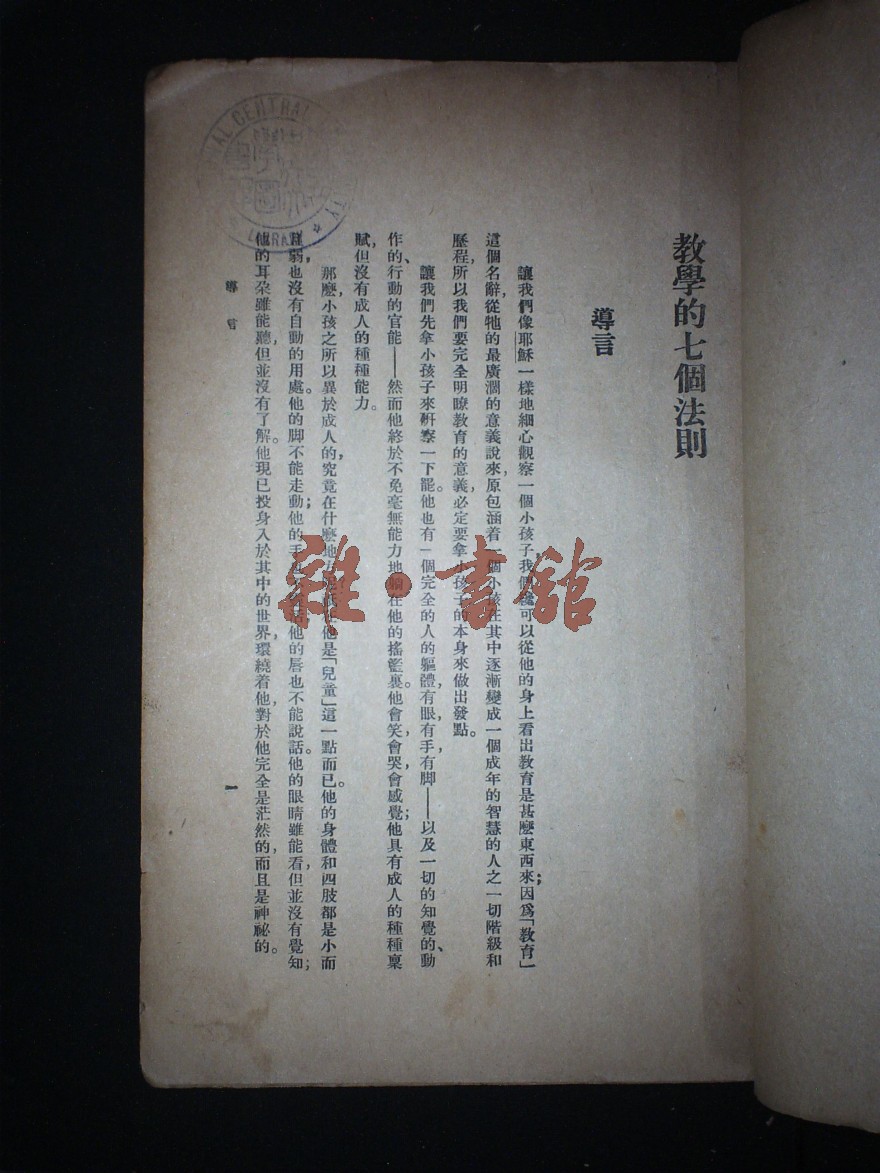 教學的七個法則
導言
讓我們像耶穌一樣地細心觀察一個小孩子，我們纔可以從他的身上看出教育是甚麼東西來；因爲「教育」
這個名辭，從牠的最廣濶的意義說來，原包涵着一個小孩在其中逐漸變成一個成年的智慧的人之一切階級和
歷程，所以我們要完全明瞭教育的意義，必定要拿小孩子的本身來做出發點。
讓我們先拿小孩子來研察一下罷。他也有一個完全的人的軀體，有眼，有手，有脚——以及一切的知覺的、動
作的、行動的官能——然而他終於不免毫無能力地躺在他的搖籃裏。他會笑，會哭，會感覺；他具有成人的種種稟
賦，但沒有成人的種種能力。
那麼，小孩之所以異於成人的，究竟在什麼地 他是「兒童」這一點而已。他的身體和四肢都是小而
弱，也沒有自動的用處。他的脚不能走動；他的手 他的唇也不能說話。他的眼睛雖能看，但並沒有覺知；
他的耳朶雖能聽，但並沒有了解。他現已投身入於其中的世界，環繞着他，對於他完全是茫然的，而且是神祕的。
導言
一
CENTRAL
LIBRARY
雜·書舘